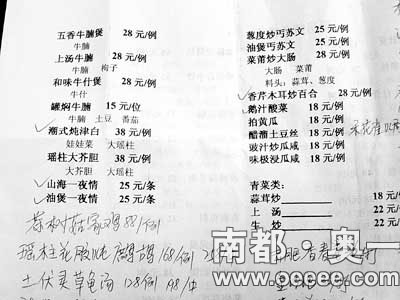 五香牛腩煲 28 元/例
牛腩
上汤牛腩 28 元/例
牛腩 梅子
和味牛什煲 28 元/例
牛什
罐焖牛腩 15 元/位
牛腩 土豆 番茄
潮式炖津白 38 元/例
娃娃菜 大瑶柱
瑶柱大芥胆 38 元/例
大芥胆 大瑶柱
山海一夜情 25 元/条
油煲一夜情 25 元/条
葱度炒丐苏文 25 元/例
油煲丐苏文 25 元/例
菜莆炒大肠 28 元/例
大肠 菜莆
料头：蒜茸、葱度
香芹木耳炒百合 28 元/例
鹅汁酸菜 18 元/例
拍黄瓜 18 元/例
醋溜土豆丝 18 元/例
豉汁炒瓜咸 18 元/例
味极浸瓜咸 18 元/例
青菜类：
蒜茸炒 18 元/
上 汤 22 元/
生 炒 22 元/
168/例
土伏灵草龟汤 128/例 198/
南都·奥一
www.oeeee.com